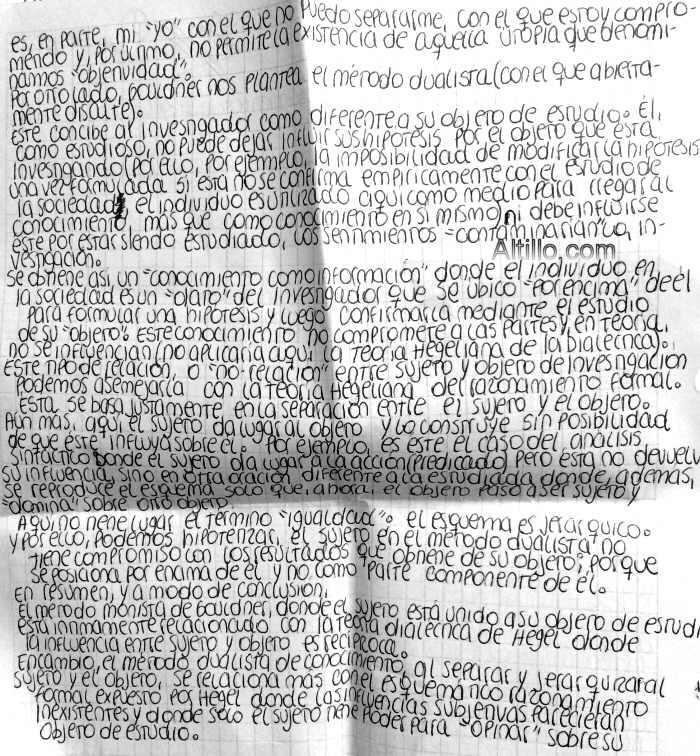 es, en parte, mi "yo" con el que no puedo separarme, con el que estoy compro-
mendo y, por último, no permite la existencia de aquella utopia que denomi-
namos "objetividad".
Por otro lado, Gouldner nos plantea el método dualista (con el que abierta-
mente discute).
Este concibe al investigador como diferente a su objeto de estudio. Él,
como estudioso, no puede dejar influir sus hipótesis por el objeto que está
investigando (por ello, por ejemplo, la imposibilidad de modificar la hipótesis
una vez formulada si esta no se confirma empiricamente con el estudio de
la sociedad, el individuo es utilizado aquí como medio para llegar al
conocimiento, más que como conocimiento en sí mismo) ni debe influirse
este por estar siendo estudiado, los sentimientos "contaminarían" la in-
vestigación.
Altillo.com
Se obtiene así un "conocimiento como información" donde el individuo en
la sociedad es un "objeto" del investigador que se ubicó "por encima" de él
para formular una hipótesis y luego confirmarla mediante el estudio
de su "objeto". Este conocimiento no compromete a las partes y, en teoría,
no se influencian (no aplicaría aquí la Teoría Hegeliana de la Dialéctica).
Este tipo de relación, o "no relación" entre sujeto y objeto de investigación
podemos asemejarla con la teoría Hegeliana del razonamiento formal.
Esta se basa justamente en la separación entre el sujeto y el objeto.
Aún más, aquí el sujeto da lugar al objeto y lo construye sin posibilidad
de que éste influya sobre él. Por ejemplo, es este el caso del análisis
sintáctico donde el sujeto da lugar a la acción (predicado) pero esta no devuelve
su influencia, sino en otra oración diferente a la estudiada donde, además,
se reproduce el esquema solo que ahora el objeto pasó a ser sujeto y
"domina" sobre otro objeto
Aquí no tiene lugar el término "igualdad". El esquema es jerárquico.
Y por ello, podemos hipotetizar, el sujeto en el método dualista no
tiene compromiso con los resultados que obtiene de su objeto, porque
se posiciona por encima de él y no como "parte componente de él.
En resumen, y a modo de conclusión,
El método monista de Gouldner, donde el sujeto está unido a su objeto de estudi
está intimamente relacionado con la teoría dialéctica de Hegel donde
la influencia entre sujeto y objeto es recíproca.
En cambio, el método dualista de conocimiento, al separar y jerarquizar al
sujeto y el objeto, se relaciona más con el esquemático razonamiento
formal expuesto por Hegel donde las influencias subjetivas parecieran
inexistentes y donde solo el sujeto tiene poder para "opinar" sobre su
objeto de estudio.